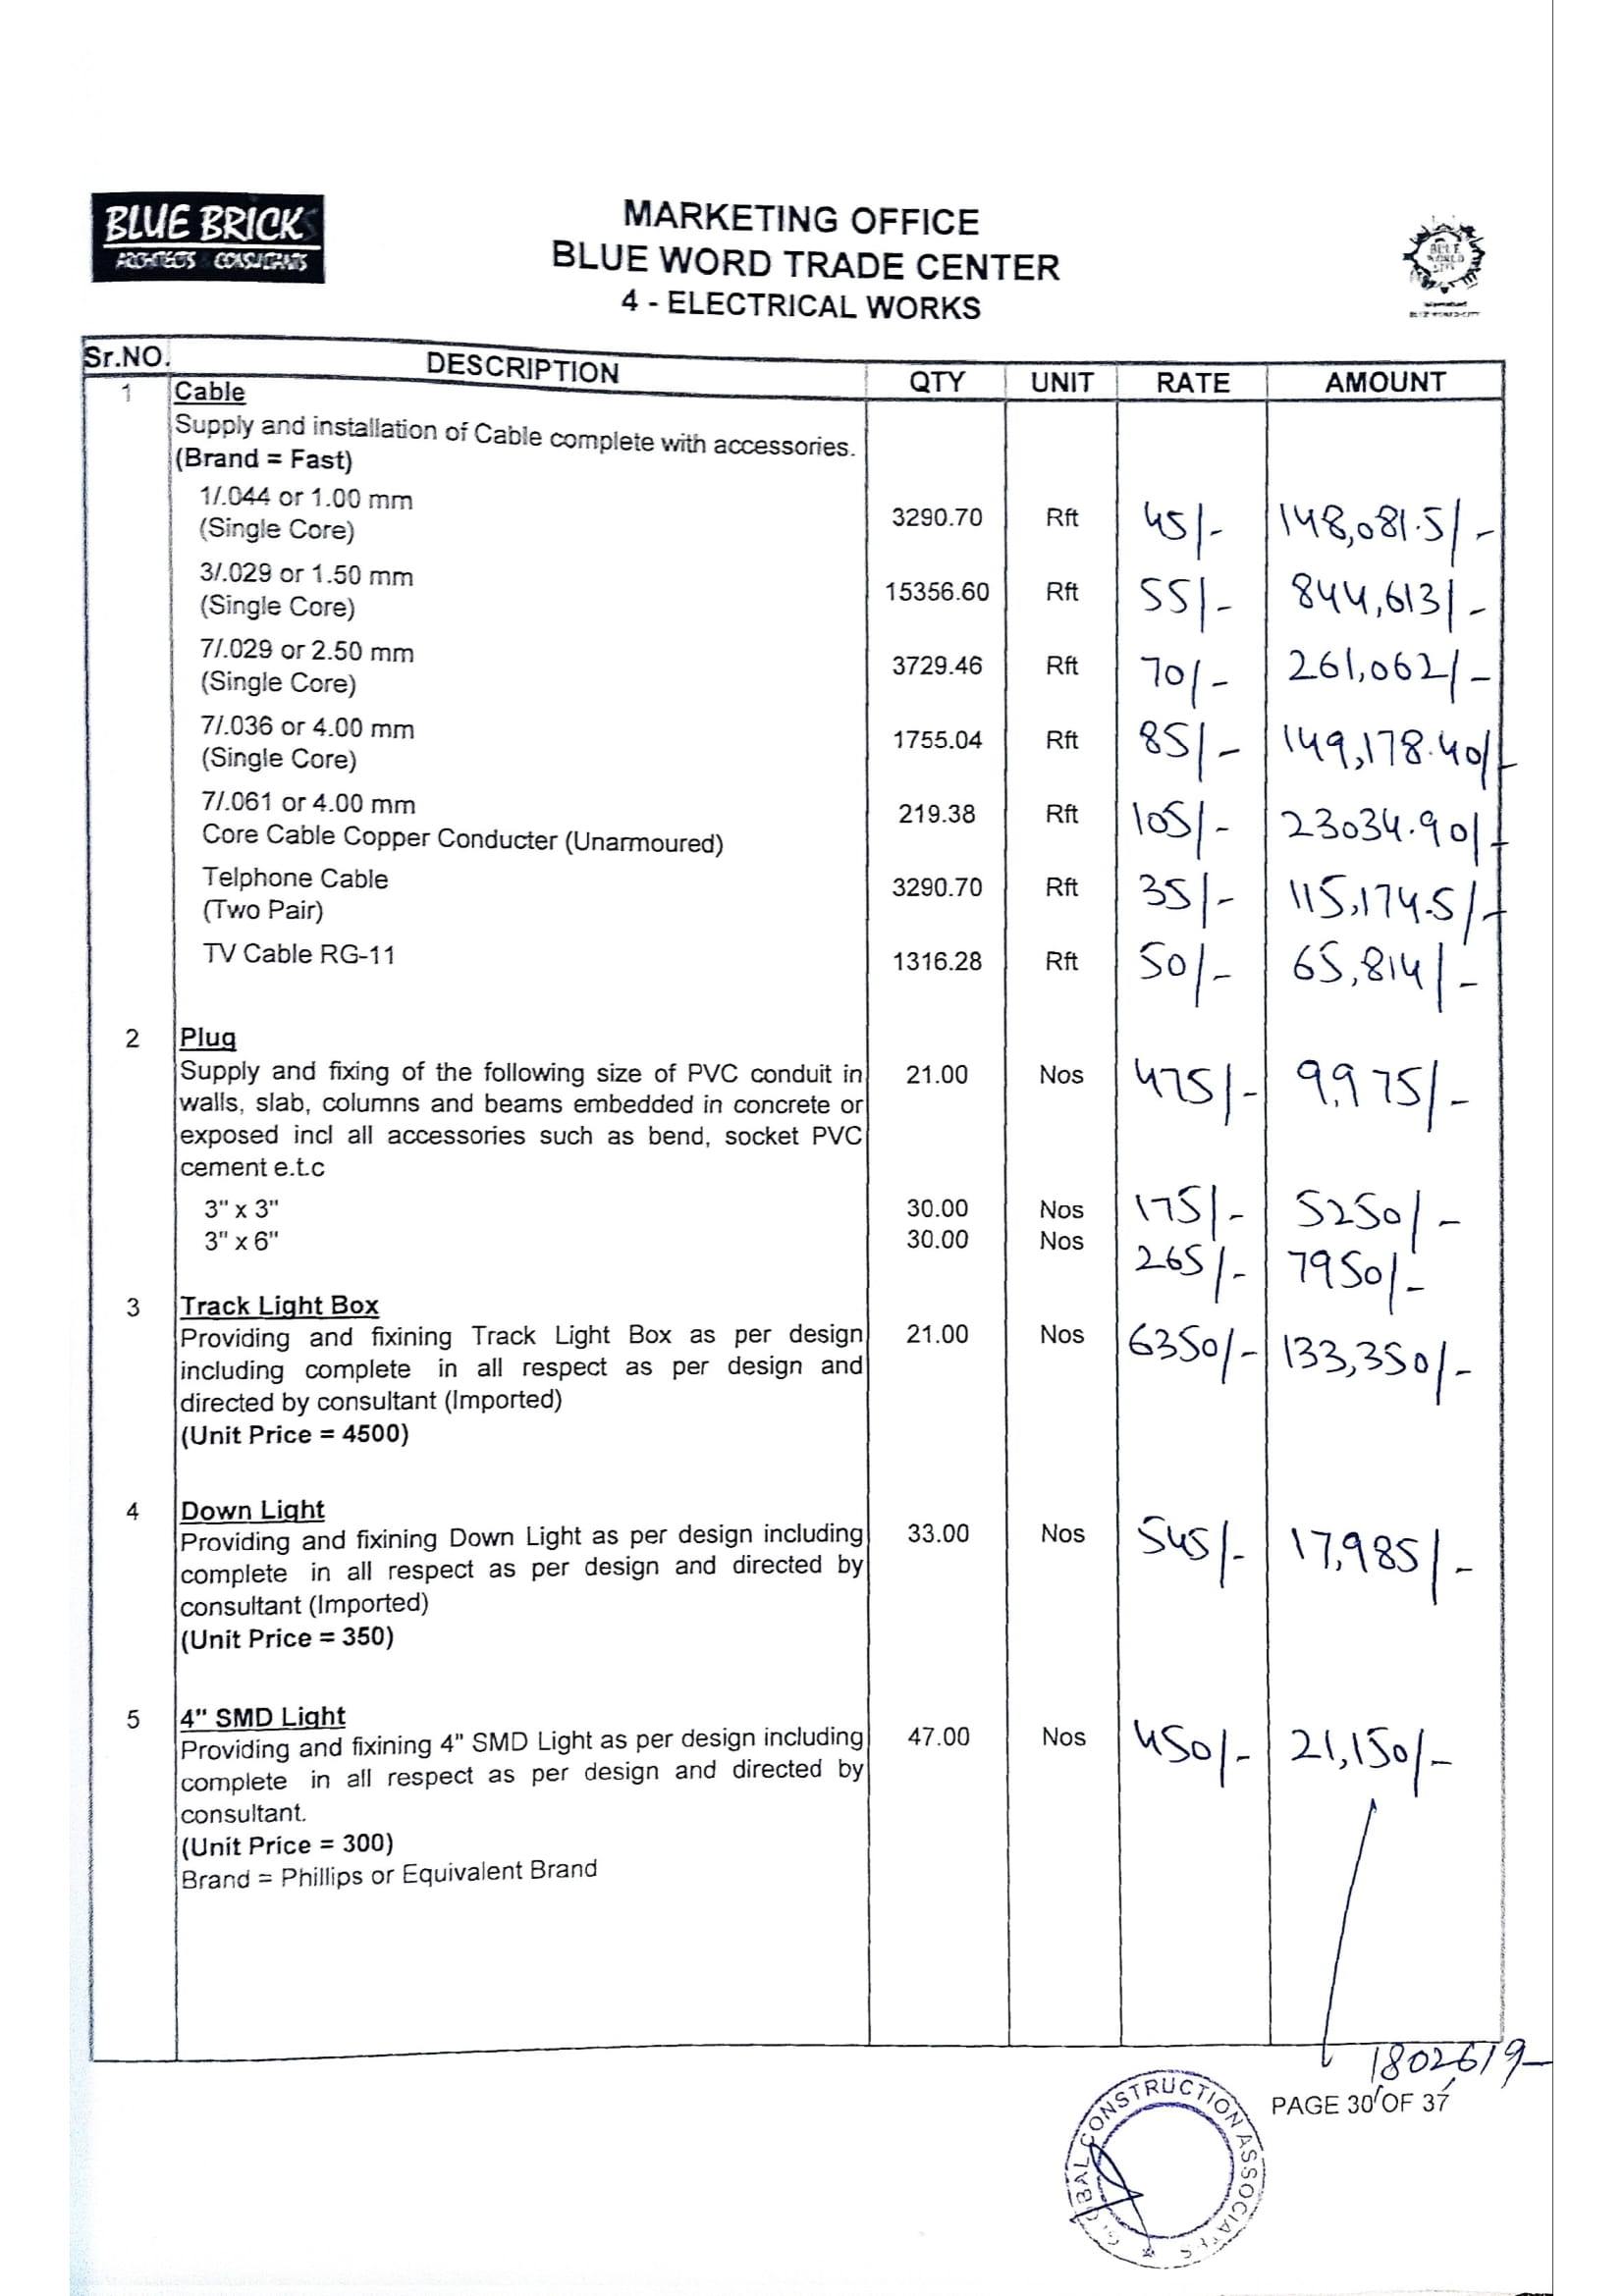 BLUE BRICKS
ARCHITECTS CONSULTANTS
MARKETING OFFICE
BLUE WORD TRADE CENTER
4 - ELECTRICAL WORKS
BLUE
WORLD
CITY
Sr.NO. DESCRIPTION QTY UNIT RATE AMOUNT
1 Cable
Supply and installation of Cable complete with accessories.
(Brand = Fast)
1/.044 or 1.00 mm
(Single Core) 3290.70 Rft 45/- 148,081.5/-
3/.029 or 1.50 mm
(Single Core) 15356.60 Rft 55/- 844,613/-
7/.029 or 2.50 mm
(Single Core) 3729.46 Rft 70/- 261,062/-
7/.036 or 4.00 mm
(Single Core) 1755.04 Rft 85/- 149,178.40/-
7/.061 or 4.00 mm
Core Cable Copper Conducter (Unarmoured) 219.38 Rft 105/- 23034.90/-
Telphone Cable
(Two Pair) 3290.70 Rft 35/- 115,174.5/-
TV Cable RG-11 1316.28 Rft 50/- 65,814/-
2 Plug
Supply and fixing of the following size of PVC conduit in 21.00 Nos 475/- 9,975/-
walls, slab, columns and beams embedded in concrete or
exposed incl all accessories such as bend, socket PVC
cement e.t.c
3" x 3" 30.00 Nos 175/- 5250/-
3" x 6" 30.00 Nos 265/- 7950/-
3 Track Light Box
Providing and fixining Track Light Box as per design 21.00 Nos 6350/- 133,350/-
including complete in all respect as per design and
directed by consultant (Imported)
(Unit Price = 4500)
4 Down Light
Providing and fixining Down Light as per design including 33.00 Nos 545/- 17,985/-
complete in all respect as per design and directed by
consultant (Imported)
(Unit Price = 350)
5 4" SMD Light
Providing and fixining 4" SMD Light as per design including 47.00 Nos 450/- 21,150/-
complete in all respect as per design and directed by
consultant.
(Unit Price = 300)
Brand = Phillips or Equivalent Brand
1802619-
PAGE 30 OF 37
GLOBAL CONSTRUCTION ASSOCIATES